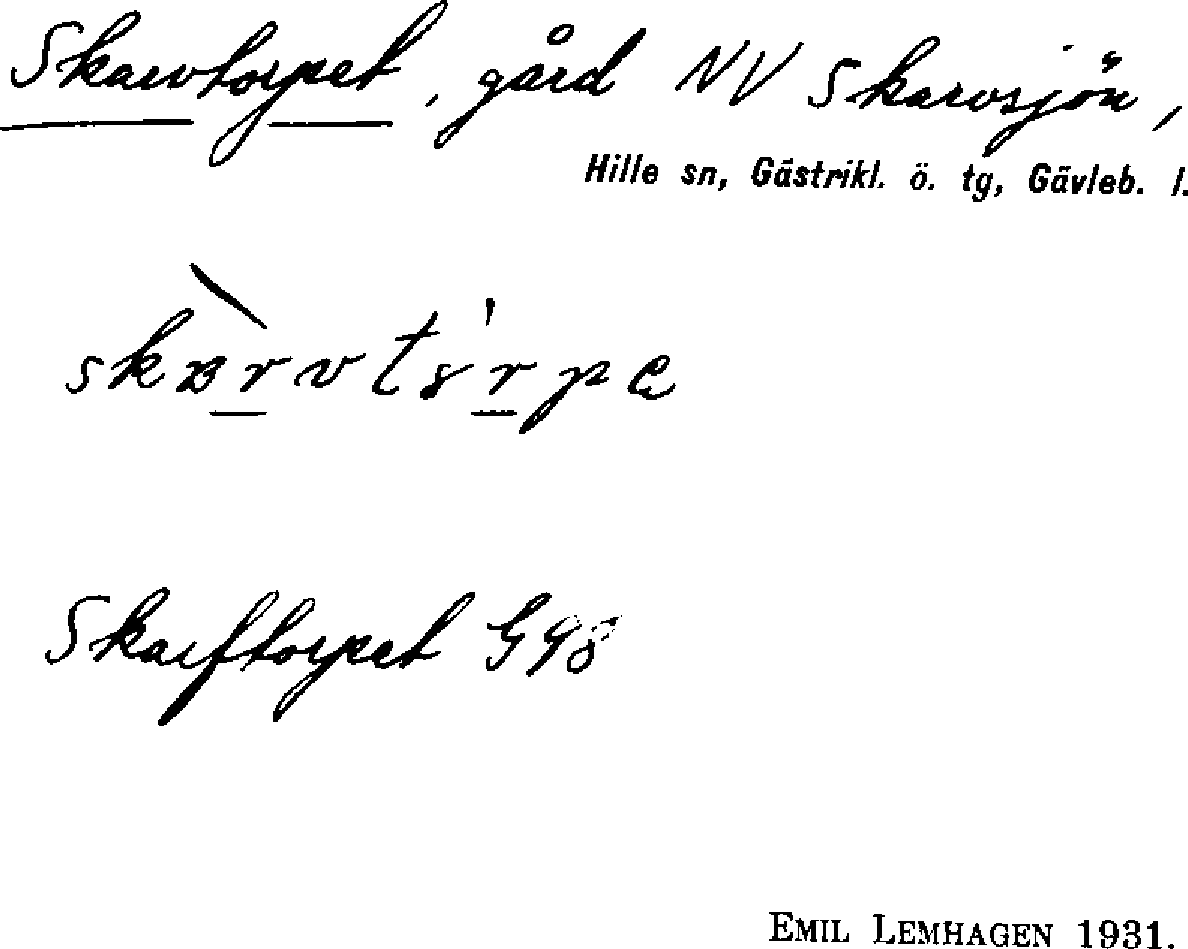 Skarvtorpet, gård NV Skarvsjön,
Hille sn, Gästrikl. ö. tg, Gävleb. l.
Skarftorpet G98
EMIL LEMHAGEN 1931.